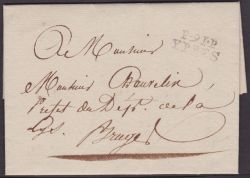 A Monsieur
P.91.P.
YPRES
Monsieur Chauvelin
Préfet du Dépt. de la
Lys.
Bruges